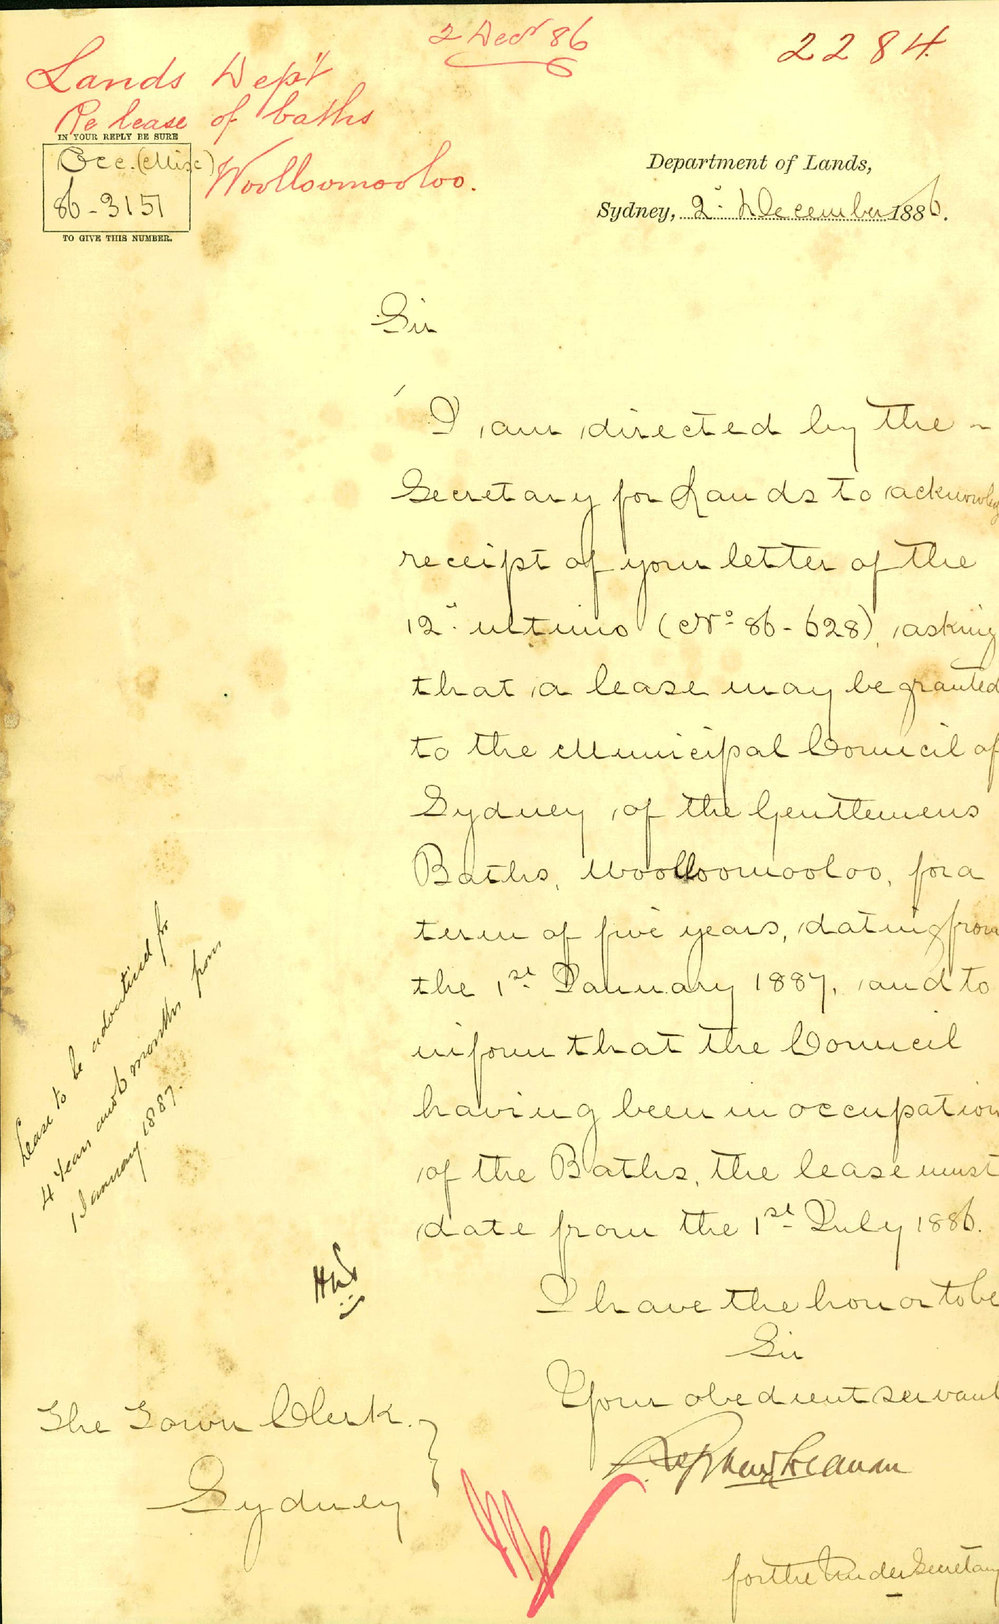 2 Decr 86
2284
Lands Dep't
Re lease of baths
Woolloomooloo.
IN YOUR REPLY BE SURE
Occ. (Misc)
86-3151
TO GIVE THIS NUMBER.
Department of Lands,
Sydney, 2d December 1886.
Sir
I am directed by the
Secretary for Lands to acknowledge
receipt of your letter of the
12th ultimo (No 86-628), asking
that a lease may be granted
to the Municipal Council of
Sydney, of the Gentlemens
Baths, Woolloomooloo, for a
term of five years, dating from
the 1st January 1887, and to
inform that the Council
having been in occupation
of the Baths, the lease must
date from the 1st July 1886.
I have the honor to be
Sir
Your obedient servant
for the Under Secretary
The Town Clerk.
Sydney
Lease to be advertised for
4 Years and 6 months from
1 January 1887.